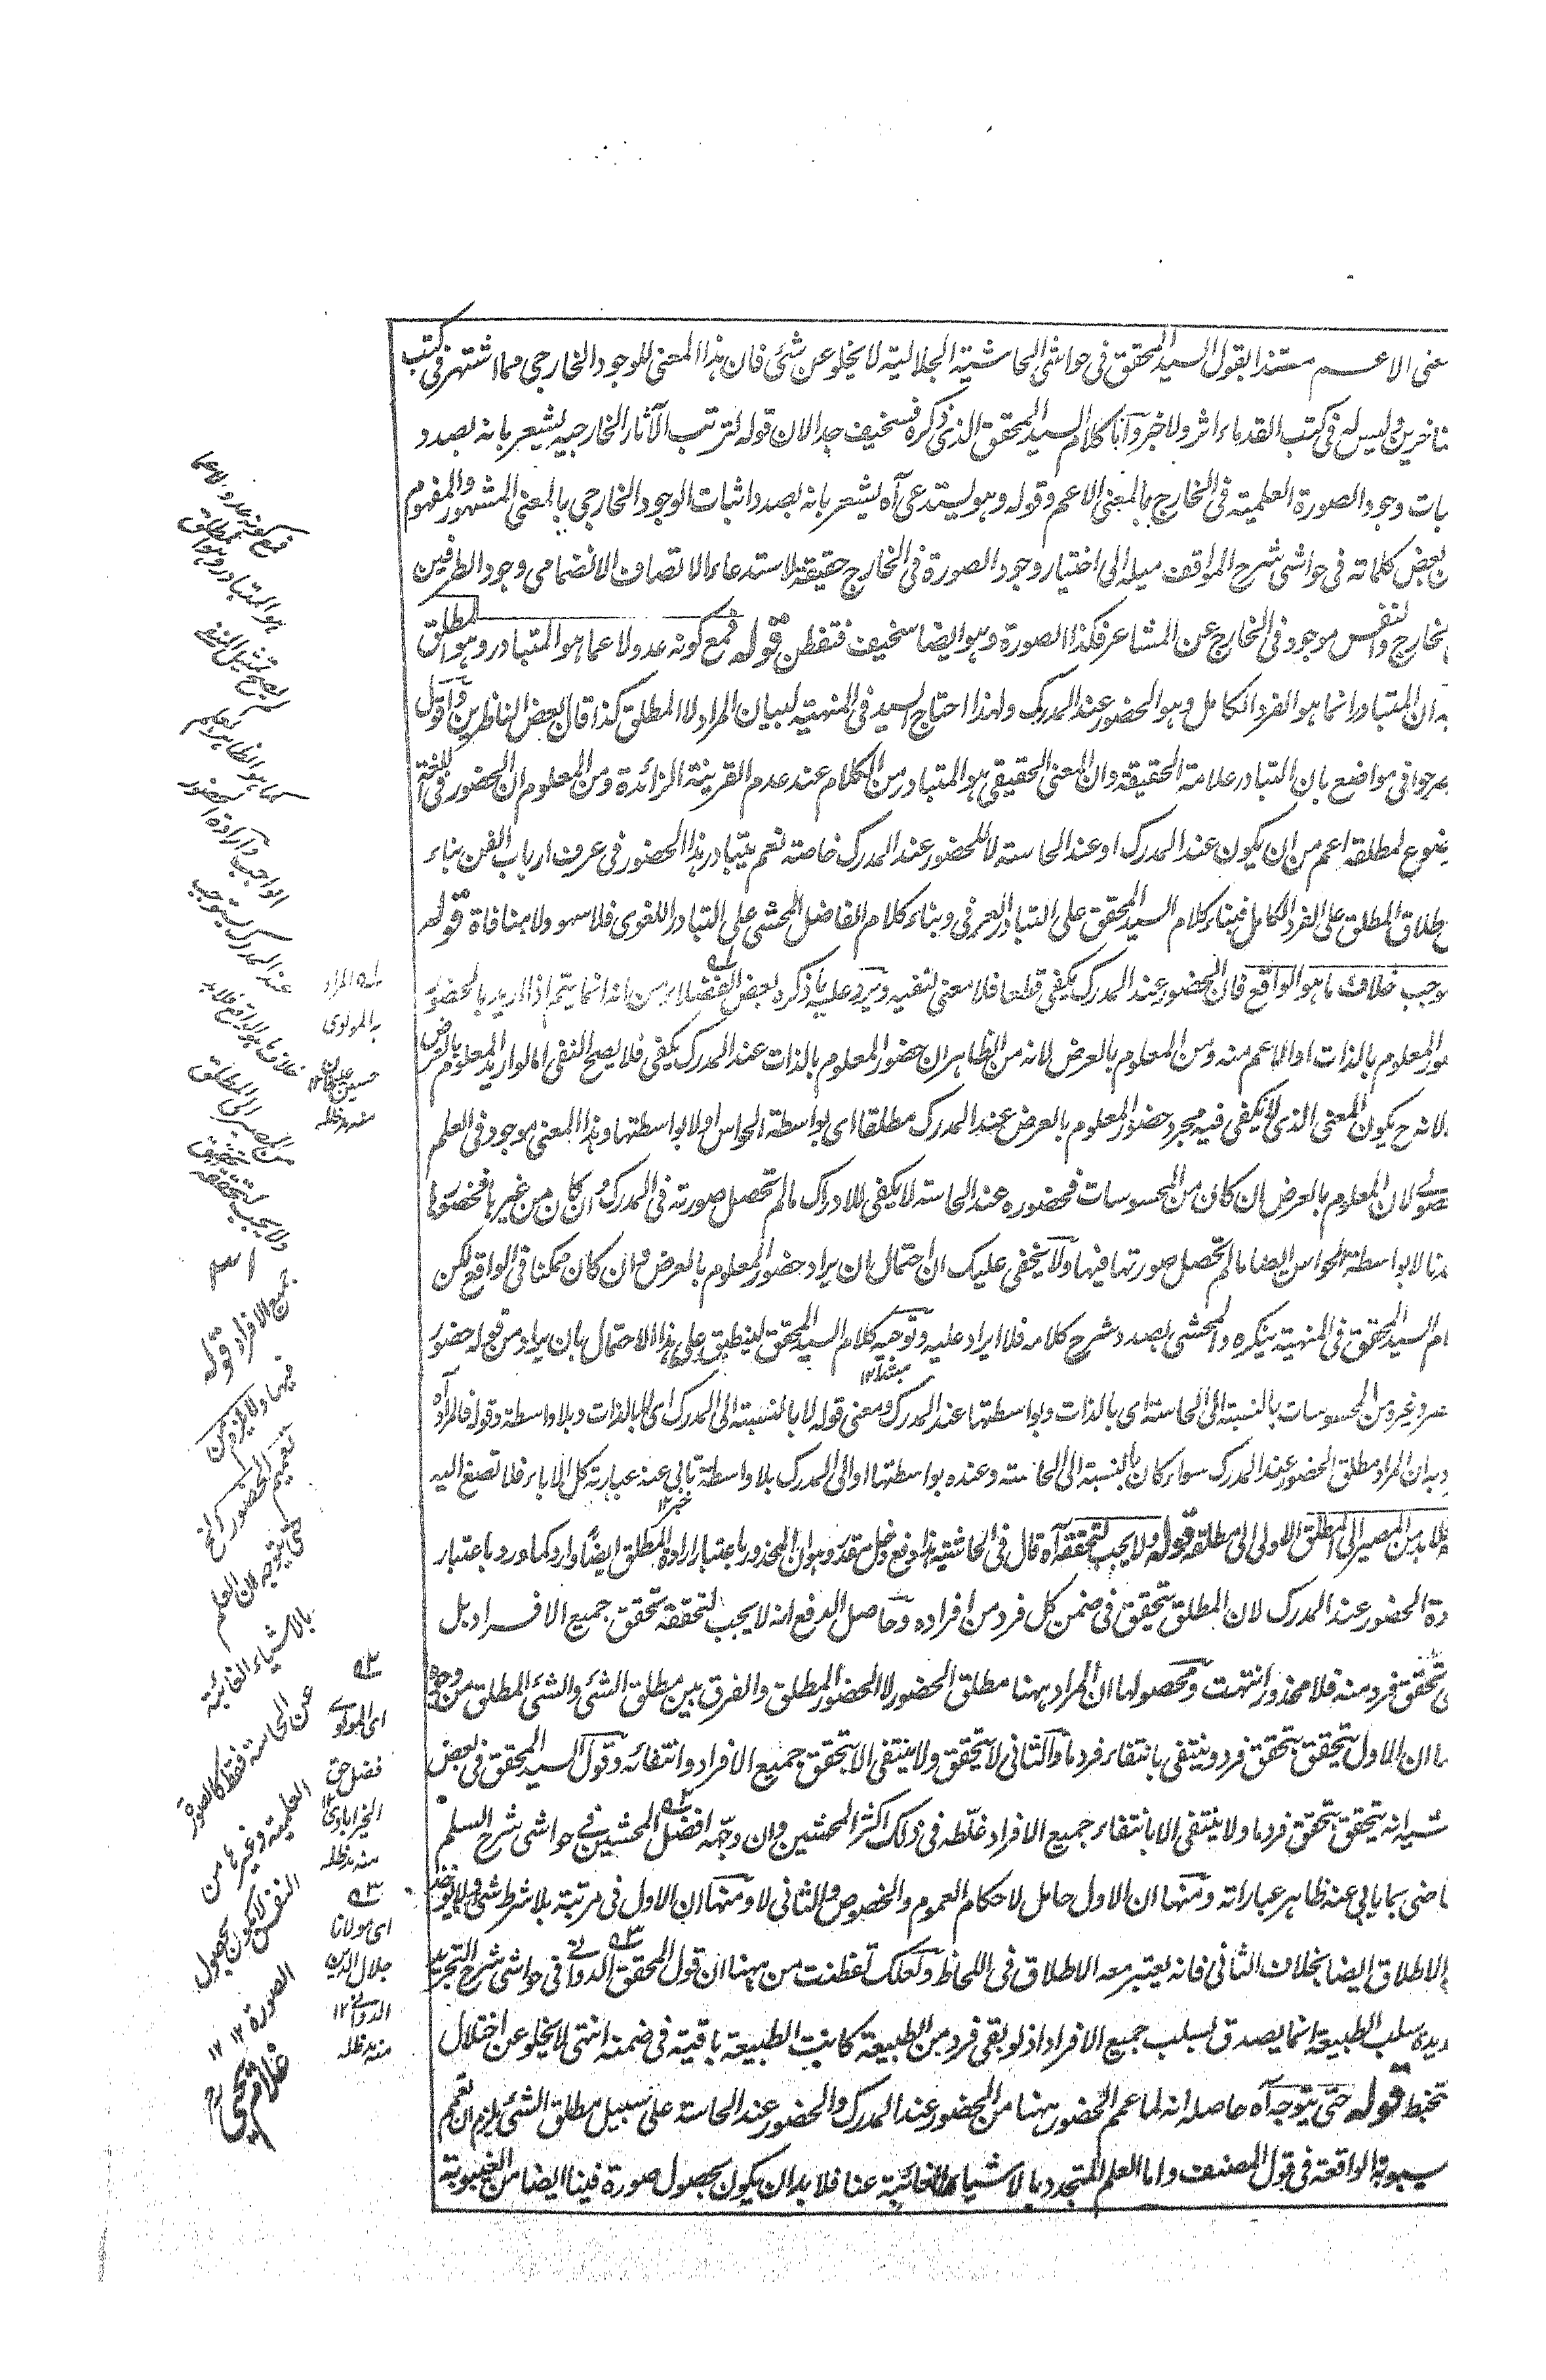 عنى الاعم مستندا بقول السيد المحقق فى حواشى الحاشية الجلالية لا يخلو عن شئ فان هذا المعنى للوجود الخارجى مما اشتهر فى كتب
تاخرين وليس له فى كتب القدماء اثر ولا خبر واما كلام السيد المحقق الذى ذكره فسخيف جدا لان قوله لترتب الآثار الخارجيه يشعر بانه بصدد
بات وجود الصورة العلمية فى الخارج بالمعنى الاعم وقوله وهو يستدعى آه يشعر بانه بصدد اثبات الوجود الخارجى بالمعنى المشهور والمفهوم
ن بعض كلماته فى حواشى شرح المواقف ميله الى اختيار وجود الصورة فى الخارج حقيقة لاستدعاء الاتصاف الانضمامى وجود الطرفين
لخارج والنفس موجود فى الخارج عن المشاعر فكذا الصورة وهو ايضا سخيف فتفطن قوله فمع كونه عدولا عما هو المتبادر وهو المطلق
ه ان المتبادر انما هو الفرد الكامل وهو الحضور عند المدرك ولهذا احتاج السيد فى المنهية لبيان المراد لا المطلق كذا قال بعض الناظرين واقول
صرحوا فى مواضع بان التبادر علامة الحقيقة وان المعنى الحقيقى هو المتبادر من الكلام عند عدم القرينة الزائدة ومن المعلوم ان الحضور فى اللغة
ضوع لمطلقه اعم من ان يكون عند المدرك او عند الحاسة لا للحضور عند المدرك خاصة نعم يتبادر هذا الحضور فى عرف ارباب الفن بناء
طلاق المطلق على الفرد الكامل فبناء كلام السيد المحقق على التبادر العرفى وبناء كلام الفاضل المحشى على التبادر اللغوى فلا سهو ولا منافاة قوله
وجب خلاف ما هو الواقع فان الحضور عند المدرك يكفى قطعا فلا معنى لنفيه ويرد عليه ما ذكره بعض الفضلاء من انه انما يتم اذا اريد بالحضور
ور المعلوم بالذات او الاعم منه ومن المعلوم بالعرض لانه من الظاهر ان حضور المعلوم بالذات عند المدرك يكفى فلا يصح النفى اما لو اريد المعلوم بالعرض
لانه ح يكون المعنى الذى لا يكفى فيه مجرد حضور المعلوم بالعرض عند المدرك مطلقا اى بواسطة الحواس او لا بواسطتها وهذا المعنى موجود فى العلم
صولى لان المعلوم بالعرض ان كان من المحسوسات فحضوره عند الحاسة لا يكفى للادراك ما لم تحصل صورته فى المدرك وان كان من غيرها فحضورها
لا بواسطة الحواس ايضا ما لم تحصل صورتها فيها ولا يخفى عليك ان احتمال ان يراد حضور المعلوم بالعرض وان كان ممكنا فى الواقع لكن
ام السيد المحقق فى المنهية ينكره والمحشى بصدد شرح كلامه فلا ايراد عليه وتوجيه كلام السيد المحقق لينطبق على هذا الاحتمال بان يراد من قوله حضور
صر وغيره من المحسوسات بالنسبة الى الحاسة اى بالذات وبواسطتها عند المدرك ومعنى قوله لا بالنسبة الى المدرك اى لا بالذات وبلا واسطة وقوله فالمراد
به ان المراد مطلق الحضور عند المدرك سواء كان بالنسبة الى الحاسة وعنده بواسطتها او الى المدرك بلا واسطة يابى عنه عبارته كل الاباء فلا تصغ اليه
لا بد من المصير الى المطلق الاولى الى مطلقه قوله ولا يجب لتحققه آه قال فى الحاشية هذا دفع دخل مقدر وهو ان المحذور باعتبار ارادة المطلق ايضا وارد كما ورد باعتبار
دة الحضور عند المدرك لان المطلق يتحقق فى ضمن كل فرد من افراده وحاصل الدفع انه لا يجب لتحققه تحقق جميع الافراد بل
تحقق فرد منه فلا محذور انتهت ومحصولها ان المراد ههنا مطلق الحضور لا الحضور المطلق والفرق بين مطلق الشئ والشئ المطلق من وجوه
ا ان الاول يتحقق بتحقق فرد وينتفى بانتفاء فرد ما والثانى لا يتحقق ولا ينتفى الا بتحقق جميع الافراد وانتفائه وقول السيد المحقق فى بعض
شيه انه يتحقق بتحقق فرد ما ولا ينتفى الا بانتفاء جميع الافراد غلّطه فى ذلك اكثر المحشين وان وجّهه افضل المحشين فى حواشى شرح السلم
اضى بما يابى عنه ظاهر عباراته ومنها ان الاول حامل لاحكام العموم والخصوص والثانى لا ومنها ان الاول فى مرتبة بلا شرط شئ ولا يؤخذ
الاطلاق ايضا بخلاف الثانى فانه يعتبر معه الاطلاق فى اللحاظ ولعلك تفطنت من ههنا ان قول المحقق الدوانى فى حواشى شرح التجريد
ديدة سلب الطبيعة انما يصدق بسلب جميع الافراد اذ لو بقى فرد من الطبيعة كانت الطبيعة باقية فى ضمنه انتهى لا يخلو عن اختلال
تخبط قوله حتى يتوجه آه حاصله انه لما عمم الحضور ههنا من الحضور عند المدرك والحضور عند الحاسة على سبيل مطلق الشئ يلزم ان تعمم
يبوبة الواقعة فى قول المصنف واما العلم المتجدد بالاشياء الغائبة عنا فلا بد ان يكون بحصول صورة فينا ايضا من الغيبوبة
فمع كونه عدولا عما
هو المتبادر وهو المطلق
كما هو الظاهر
الواجب وارادة الحضور
عند المدرك يستوجب
خلاف ما هو الواقع فلا بد
من المصير الى المطلق
ولا يجب لتحققه تحقق
جميع الافراد قوله
تعميم الحضور
حتى يتوجه ان العلم
بالاشياء الغائبة
عن الحاسة فقط كالصورة
العلمية وغيرها من
النفس لا يكون بحصول
الصورة ١٢ ١٢
غلام يحيى
المراد
به المولوى
منه مد ظله
٥٢
اى المولوى
فضل حق
الخيرابادى ١٢
منه مد ظله
٥٣
اى مولانا
جلال الدين
الدوانى ١٢
منه مد ظله